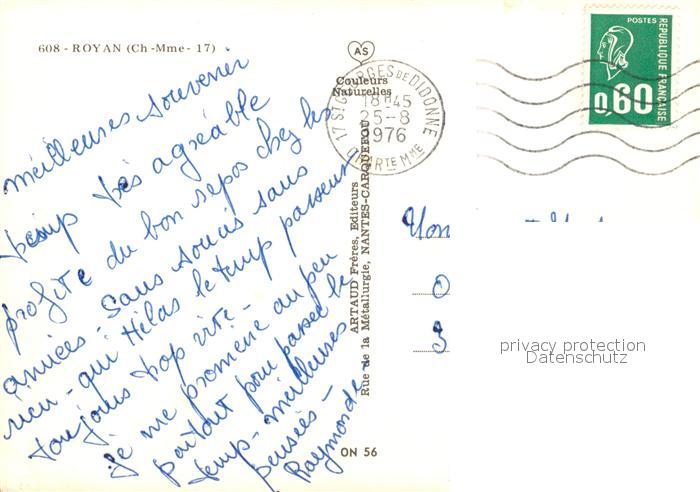 608 - ROYAN (Ch-Mme- 17)
AS
Couleurs
Naturelles
17 St GEORGES DE DIDONNE
18H45
25-8
1976
CHARTE Mme
POSTES
REPUBLIQUE FRANÇAISE
0,60
meilleures souvenir
temp très agréable
profite du bon repos chez les
amiées - sans soucis sans
rien - qui Hélas le temp passent
toujours trop vite -
Je me promene un peu
partout pour passer le
temp - meilleures
pensées -
Raymonde -
ARTAUD Frères, Editeurs
Rue de la Métallurgie, NANTES-CARQUEFOU
ON 56
privacy protection
Datenschutz